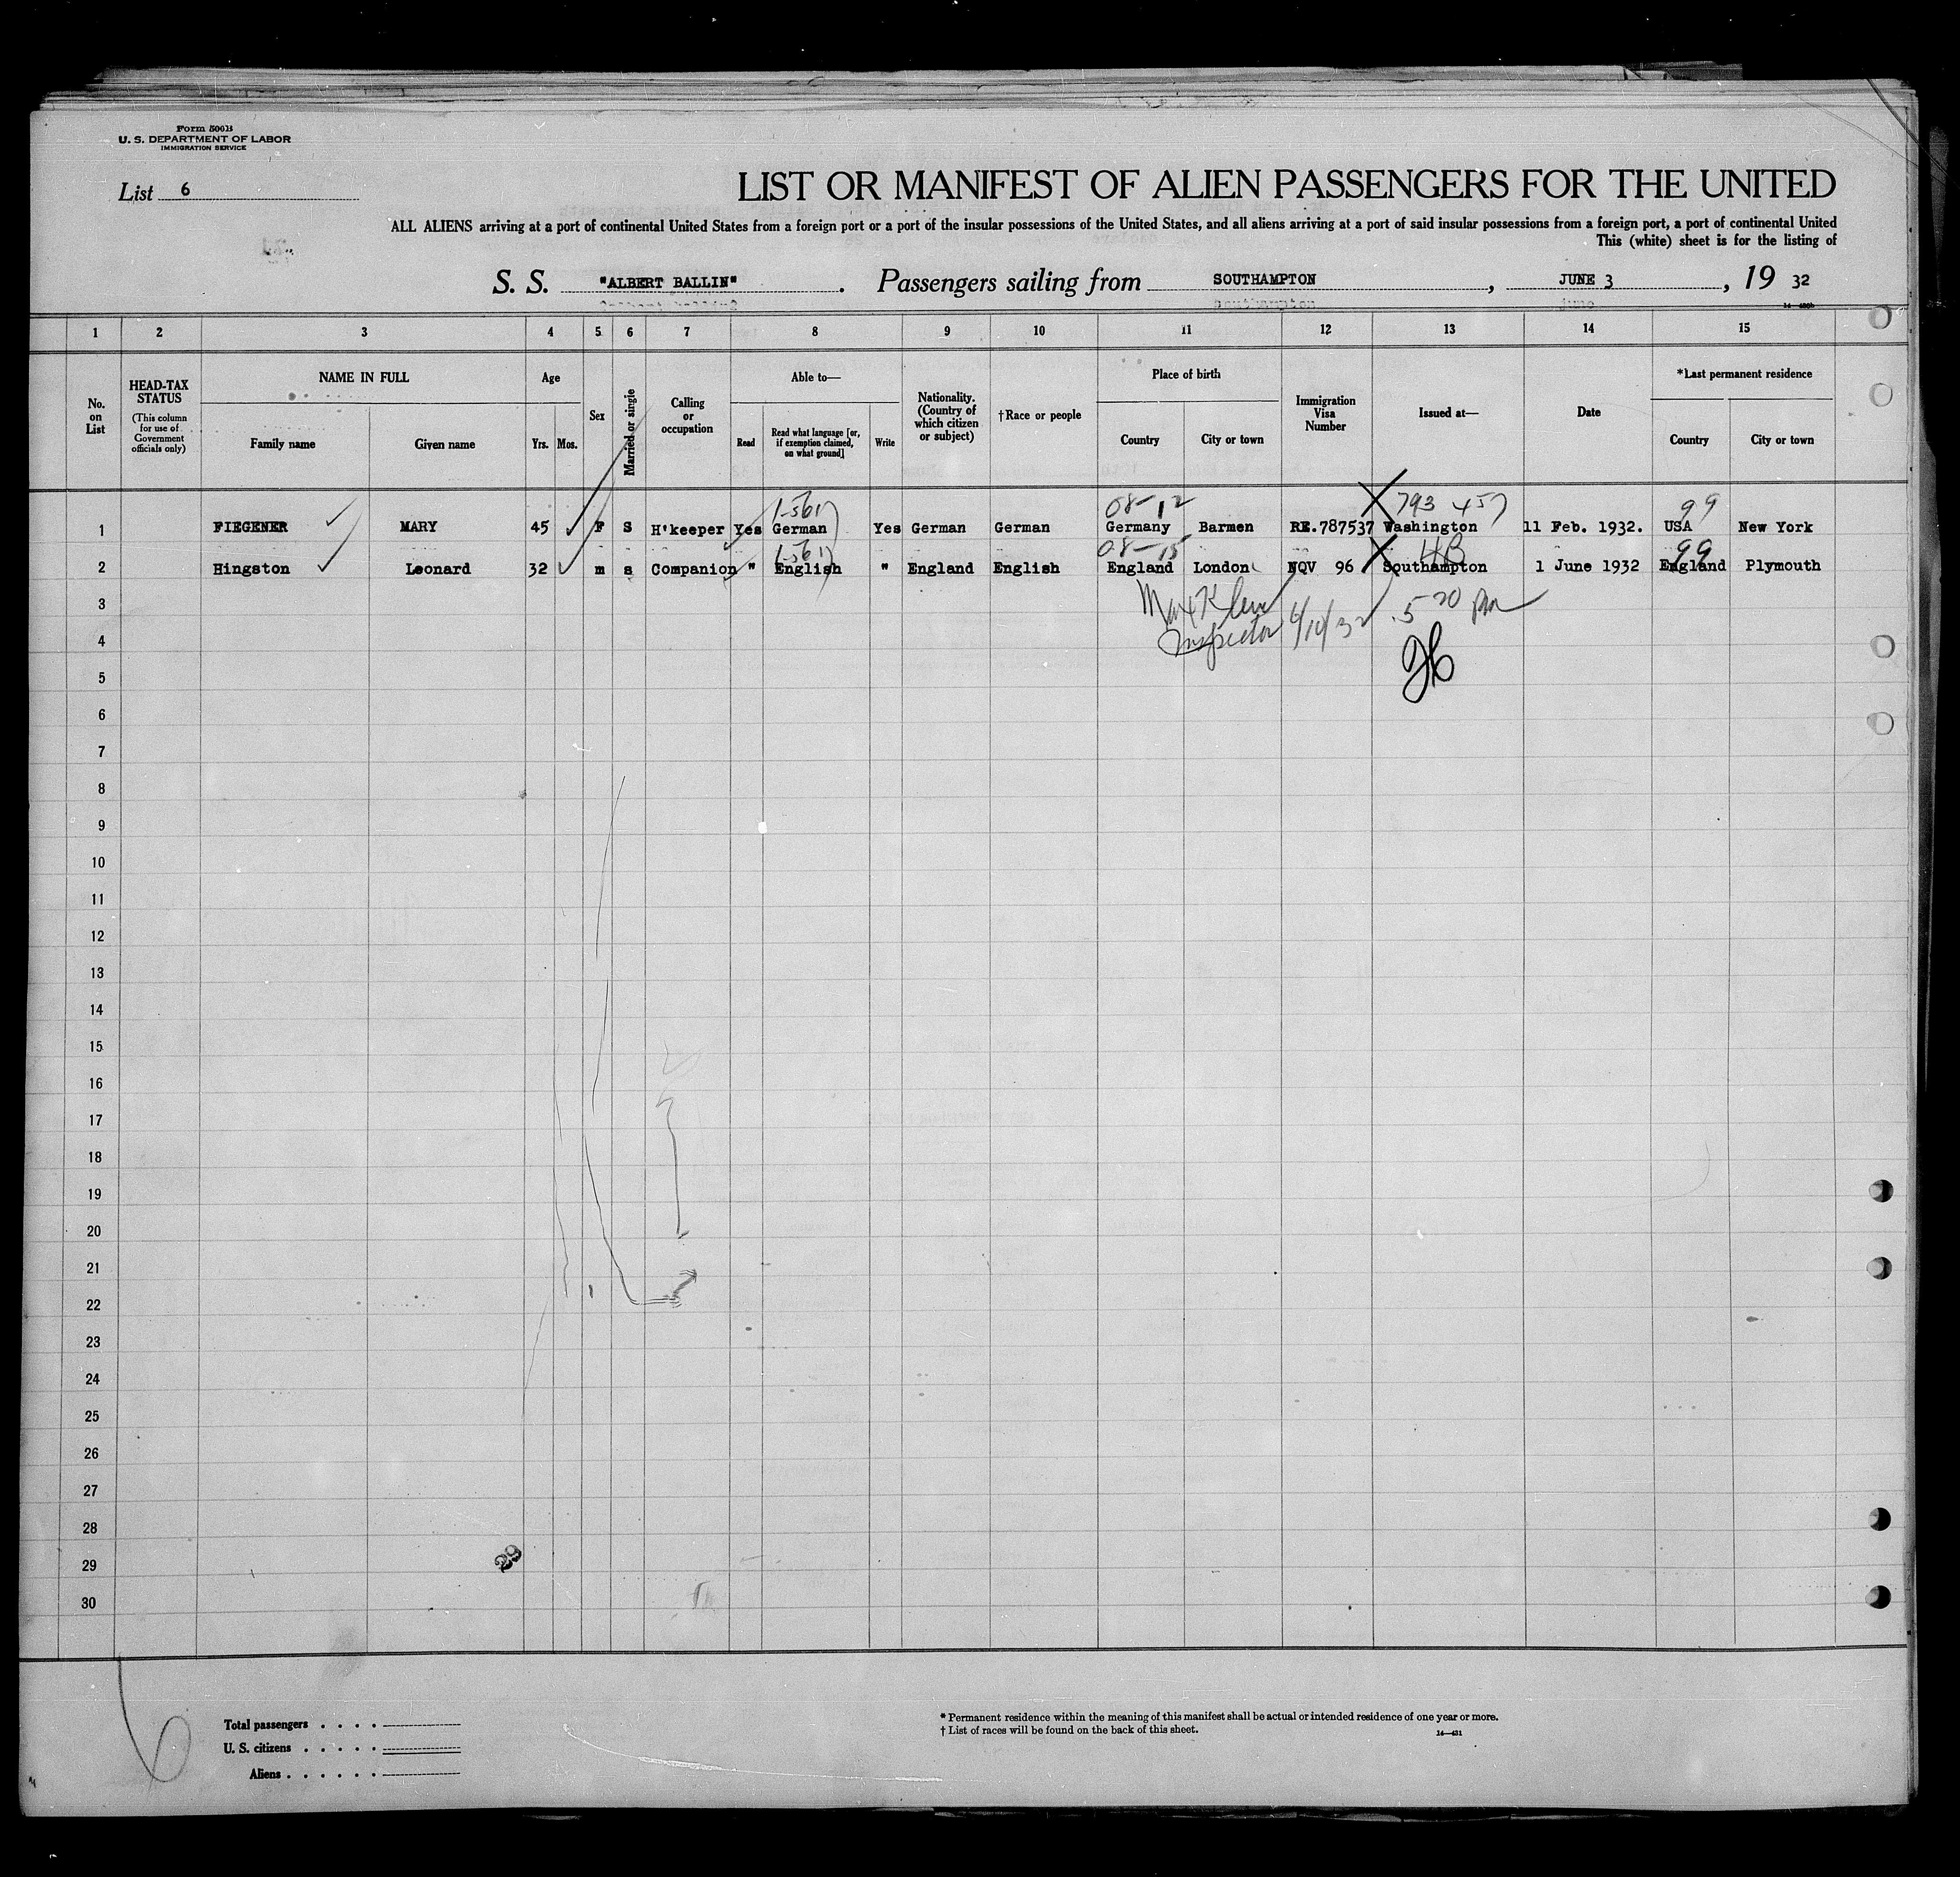 Form 500B
U. S. DEPARTMENT OF LABOR
IMMIGRATION SERVICE
List 6
LIST OR MANIFEST OF ALIEN PASSENGERS FOR THE UNITED
ALL ALIENS arriving at a port of continental United States from a foreign port or a port of the insular possessions of the United States, and all aliens arriving at a port of said insular possessions from a foreign port, a port of continental United
This (white) sheet is for the listing of
S. S. "ALBERT BALLIN". Passengers sailing from SOUTHAMPTON, JUNE 3, 19 32
1 2 3 4 5 6 7 8 9 10 11 12 13 14 15
No. on List
HEAD-TAX STATUS (This column for use of Government officials only)
NAME IN FULL
Family name Given name
Age
Yrs. Mos.
Sex
Married or single
Calling or occupation
Able to—
Read Read what language [or, if exemption claimed, on what ground] Write
Nationality. (Country of which citizen or subject)
†Race or people
Place of birth
Country City or town
Immigration Visa Number
Issued at—
Date
*Last permanent residence
Country City or town
08-12 793 457 99
1 FIEGENER MARY 45 F S H'keeper Yes German Yes German German Germany Barmen RE.787537 Washington 11 Feb. 1932. USA New York
08-15 99
2 Hingston Leonard 32 m s Companion " English " England English England London NQV 96 Southampton 1 June 1932 England Plymouth
3
Inspector 6/10/32 5 20 PM
4
5
6
7
8
9
10
11
12
13
14
15
16
17
18
19
20
21
22
23
24
25
26
27
28
29
30
6
Total passengers . . . .
U. S. citizens . . . . .
Aliens . . . . . .
* Permanent residence within the meaning of this manifest shall be actual or intended residence of one year or more.
† List of races will be found on the back of this sheet.
14—431